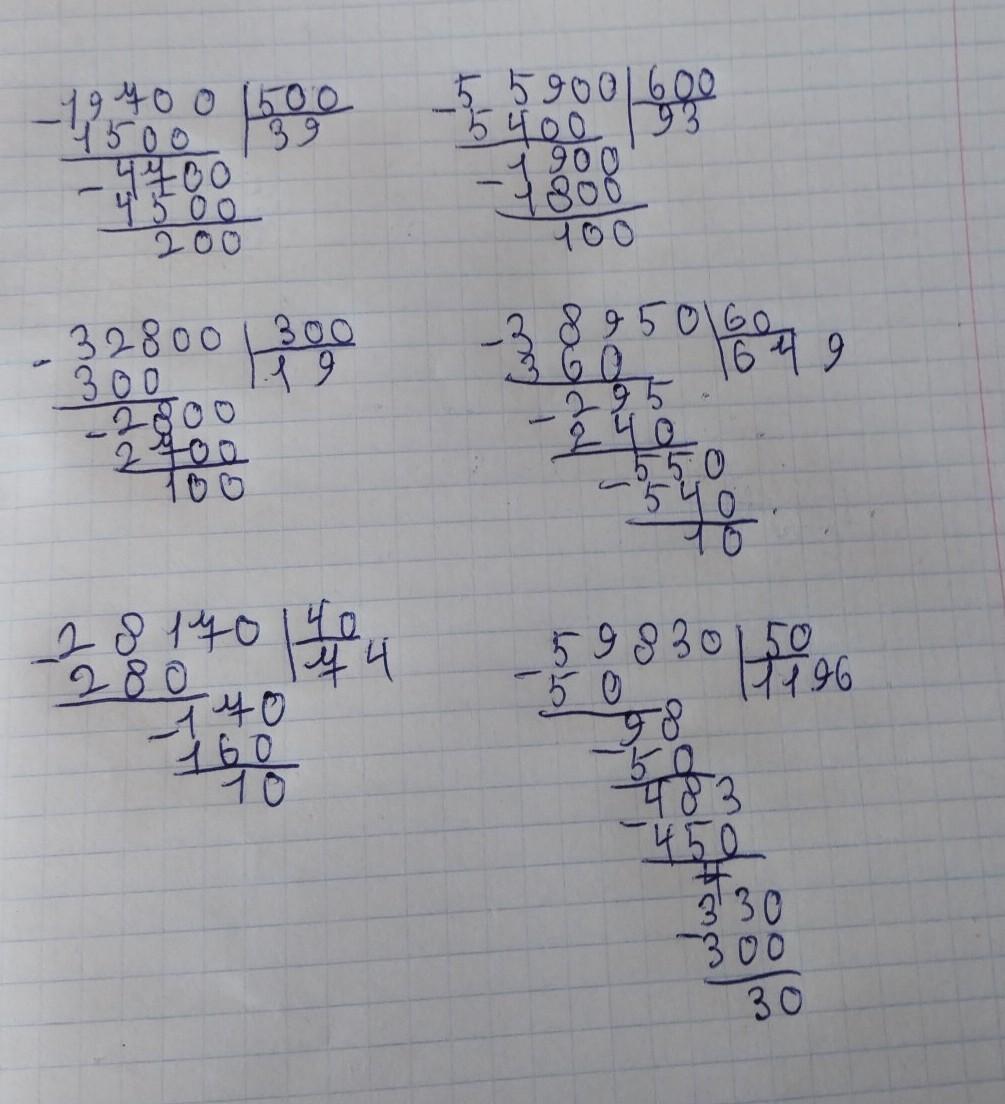 19700 500
1500 39
4700
4500
200
55900 600
5400 93
1900
1800
100
32800 300
300 19
2800
2700
100
38950 60
360 649
295
240
550
540
10
28170 40
280 74
170
160
10
59830 50
50 1196
98
50
483
450
330
300
30